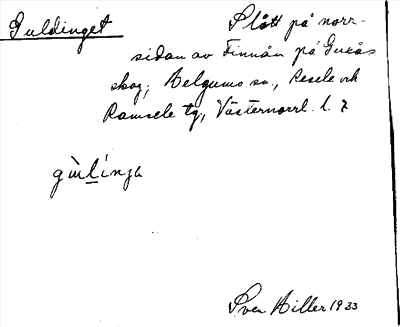 Guldinget
Slått på norr-
sidan av Finnån på Gukås-
skog; Helgums sn., Resele och
Ramsele tg, Västernorrl. l. Z
Sven Hiller 1933